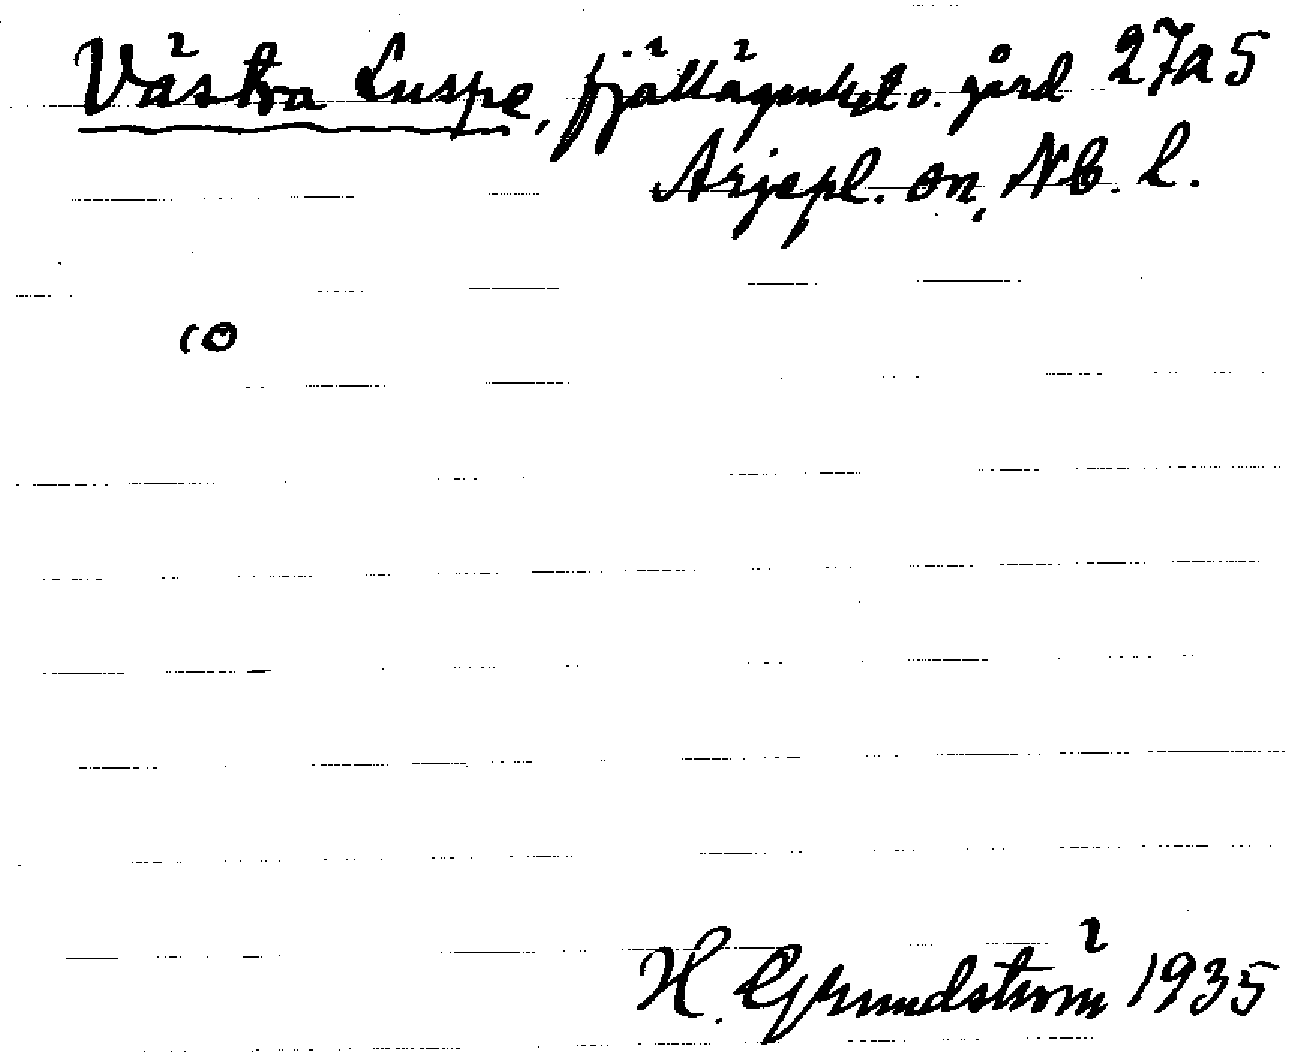 Västra Luspe, fjällägenhet o. gård 27a5
Arjepl. sn, Nb. l.
H. Grundström 1935